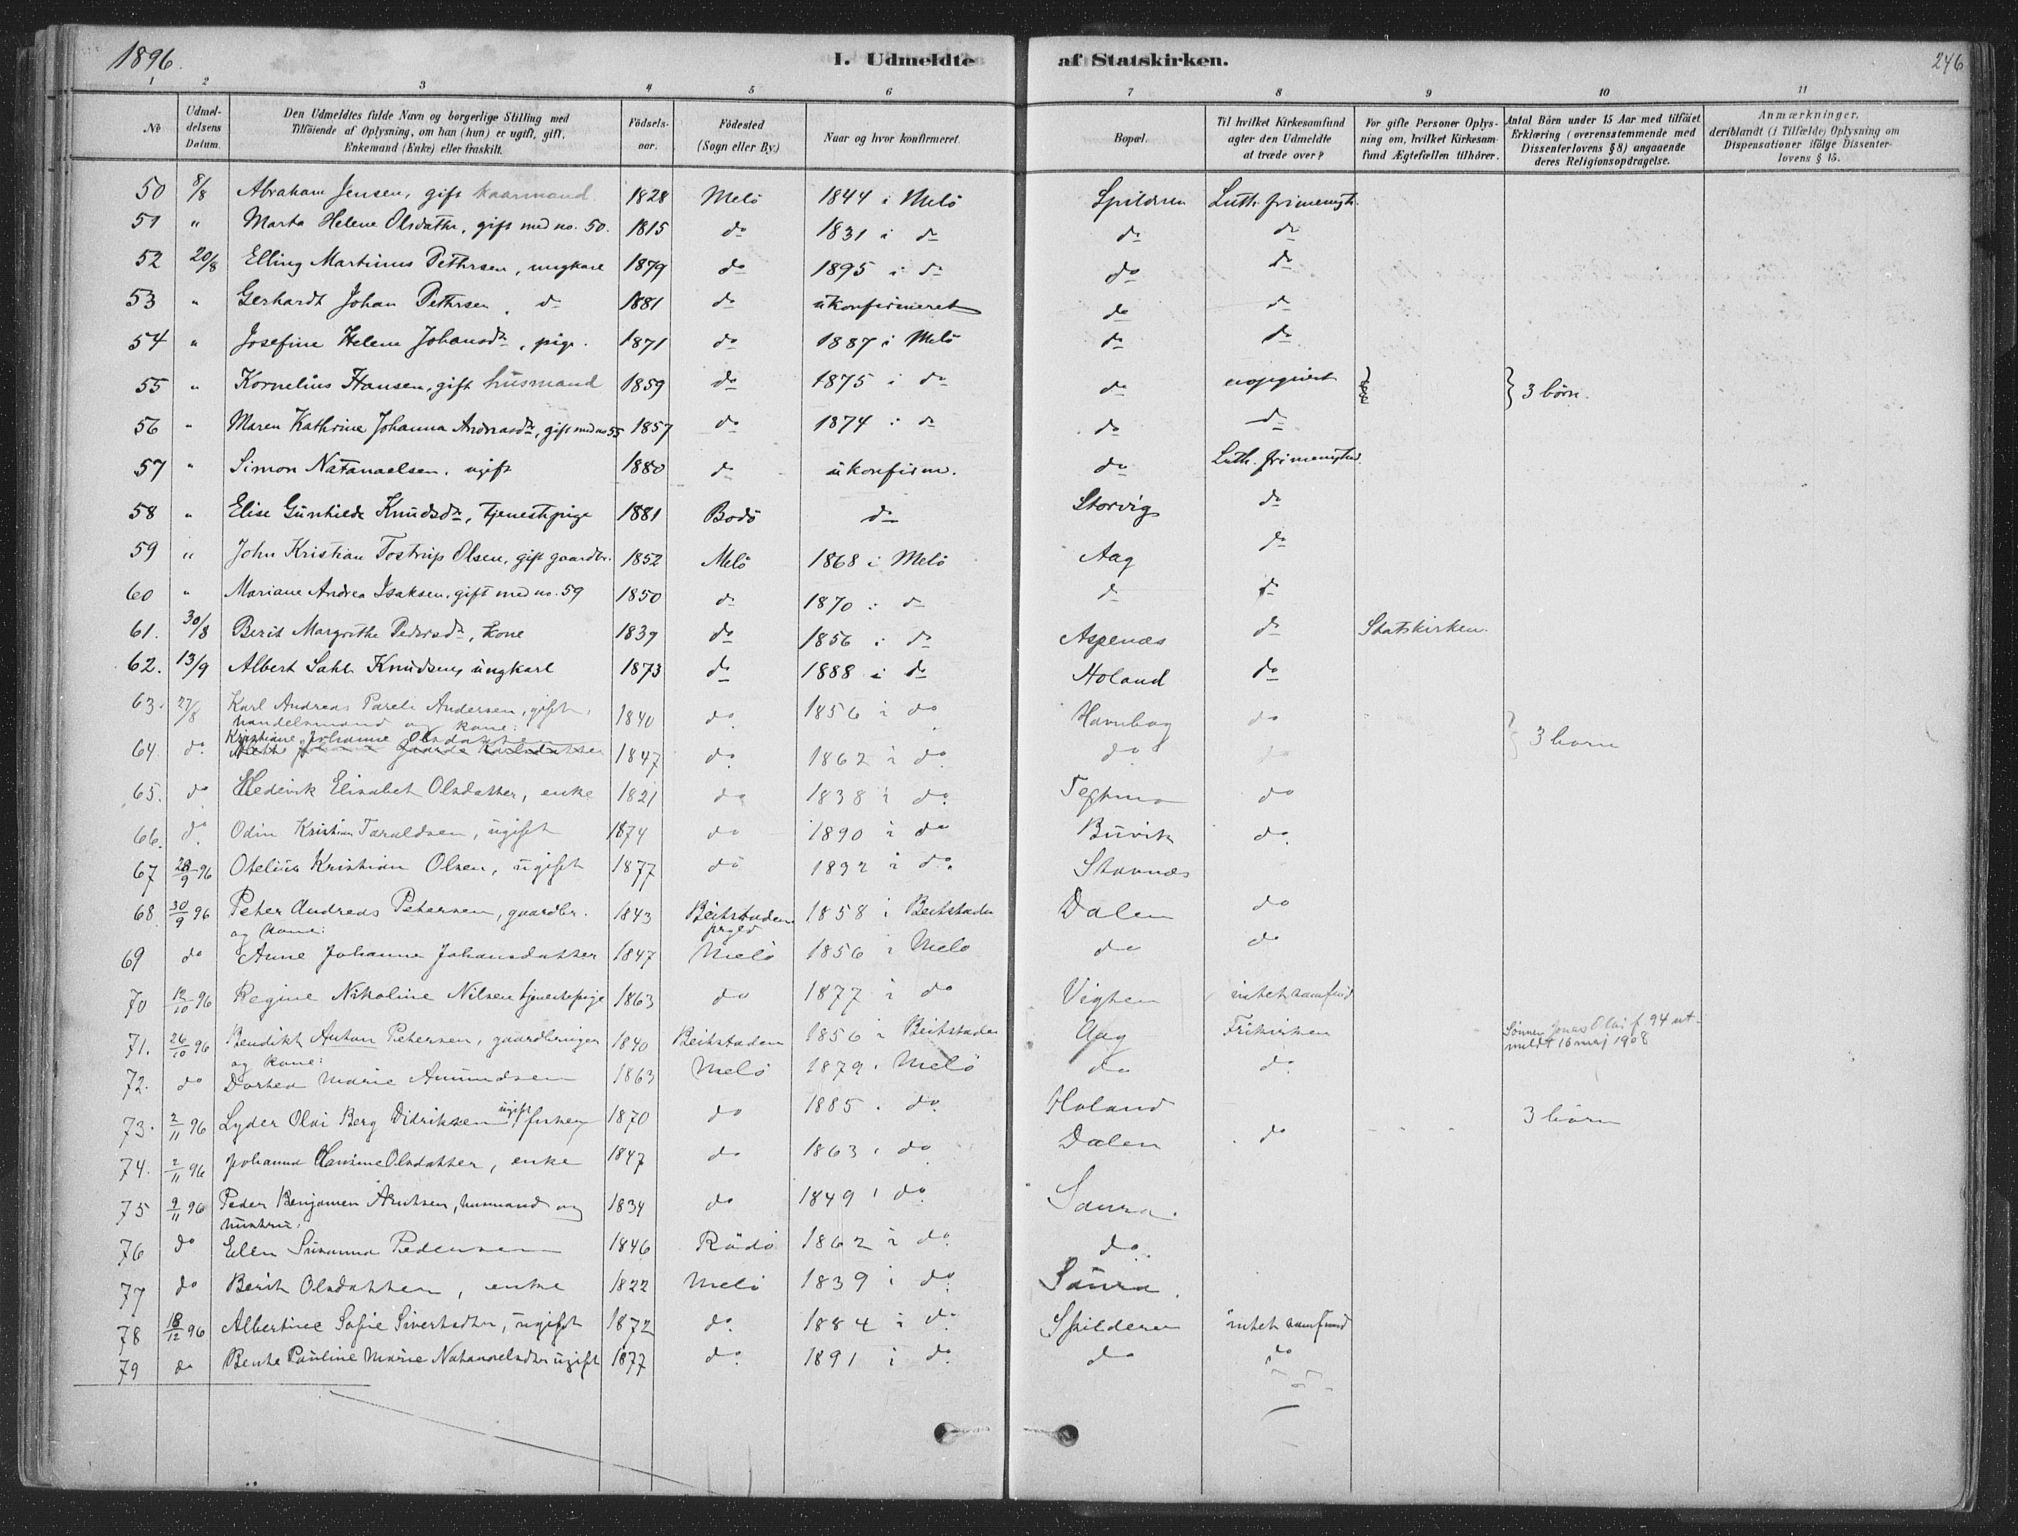 1896.
I. Udmeldte af Statskirken.
246
1 2 3 4 5 6 7 8 9 10 11
No
Udmel-
delsens
Datum.
Den Udmeldtes fulde Navn og borgerlige Stilling med
Tilföiende af Oplysning, om han (hun) er ugift, gift,
Enkemand (Enke) eller fraskilt.
Födsels-
aar.
Födested
(Sogn eller By.)
Naar og hvor konfirmeret.
Bopæl.
Til hvilket Kirkesamfund
agter den Udmeldte
at træde over?
For gifte Personer Oplys-
ning om, hvilket Kirkesam-
fund Ægtefællen tilhörer.
Antal Börn under 15 Aar med tilföiet
Erklæring (overensstemmende med
Dissenterlovens § 8) angaaende
deres Religionsopdragelse.
Anmærkninger,
deriblandt (i Tilfælde) Oplysning om
Dispensationer ifölge Dissenter-
lovens § 15.
50 8/8 Abraham Jensen, gift kaarmand 1828 Melö 1844 i Melö Spildren Luth. frimenigh.
51 " Marta Helene Olsdatter, gift med no. 50. 1815 do 1831 i do do do
52 20/8 Elling Martinus Pettersen, ungkarl 1879 do 1895 i do do do
53 " Gerhardt Johan Pettersen, do 1881 do ukonfirmeret do do
54 " Josefine Helene Johansdtr, pige. 1871 do 1887 i Melö do do
55 " Kornelius Hansen, gift husmand 1859 do 1875 i do do uopgivet } 3 börn.
56 " Maren Kathrine Johanna Andreasdtr, gift med no 55 1857 do 1874 i do do do
57 " Simon Natanaelsen, ugift 1880 do ukonfirm. do Luth. frimenighed.
58 " Elise Gunhilde Knudsdtr, tjenestepige 1881 Bodö do Storvig do
59 " John Kristian Tostrup Olsen, gift gaardbr. 1852 Melö 1868 i Melö Aag do
60 " Mariane Andrea Isaksen, gift med no. 59 1850 do 1870 i do do do
61. 30/8 Berit Margrethe Pedersdtr, kone 1839 do 1856 i do Aspenæs do Statskirken.
62. 13/9 Albert Dahl Knudsen, ungkarl 1873 do 1888 i do Holand do
63. 27/8 Karl Andreas Andersen, gift,
handelsmand og kone: 1840 do 1856 i do Havnbog do
64. do Kristiane Johanne Olsdatter 1847 do 1862 i do. do do } 3 børn
65. do Hedevik Elisabet Olsdatter, enke 1821 do 1838 i do. do
66. do Odin Kristian Taraldsen, ugift 1874 do 1890 i do Buvik do.
67 28/9 96 Otelius Kristian Olsen, ugift 1877 do 1892 i do. Stavnæs
68 30/9 96 Peter Andreas Petersen, gaardbr.
og kone: 1843 Beitstaden
prgld 1858 i Beitstaden Dalen do
69 do Anne Johanne Johansdatter 1847 Melö 1856 i Melö do do
70 12/10 96 Regine Nikoline Nilsen tjenestepige 1863 do 1877 i do Vigten intet samfund
71. 26/10 96 Bendikt Anton Petersen, gaardbruger
og kone: 1840 Beitstaden 1856 i Beitstaden Aag Frikirken Sønnen Jonas Olai f. 94 ut-
meldt 16 maj 1908
72. do Dorthea Marie Amundsen 1863 Melö 1879 i Melö do do.
73. 2/11 96 Lyder Olai Berg Didriksen ugift fisker 1870 do 1885 i do. Holand 3 börn
74. 2/11 96 Johanna Hansine Olsdatter, enke 1847 do 1863 i do Dalen do
75 9/11 96 Peder Benjamin Arntsen, husmand og
hustru: 1834 do 1849 i do Saura.
76 do Ellen Susanna Pedersen 1846 Rödö 1862 i do. do.
77 do Berit Olsdatter, enke 1822 Melö 1839 i do Saura.
78 18/12 96 Albertine Sofie Sivertsdtr, ugift 1872 do. 1884 i do. Spilderen intet samfund
79 do Bente Pauline Marie Natanaelsdtr ugift 1877 do. 1891 i do. do do